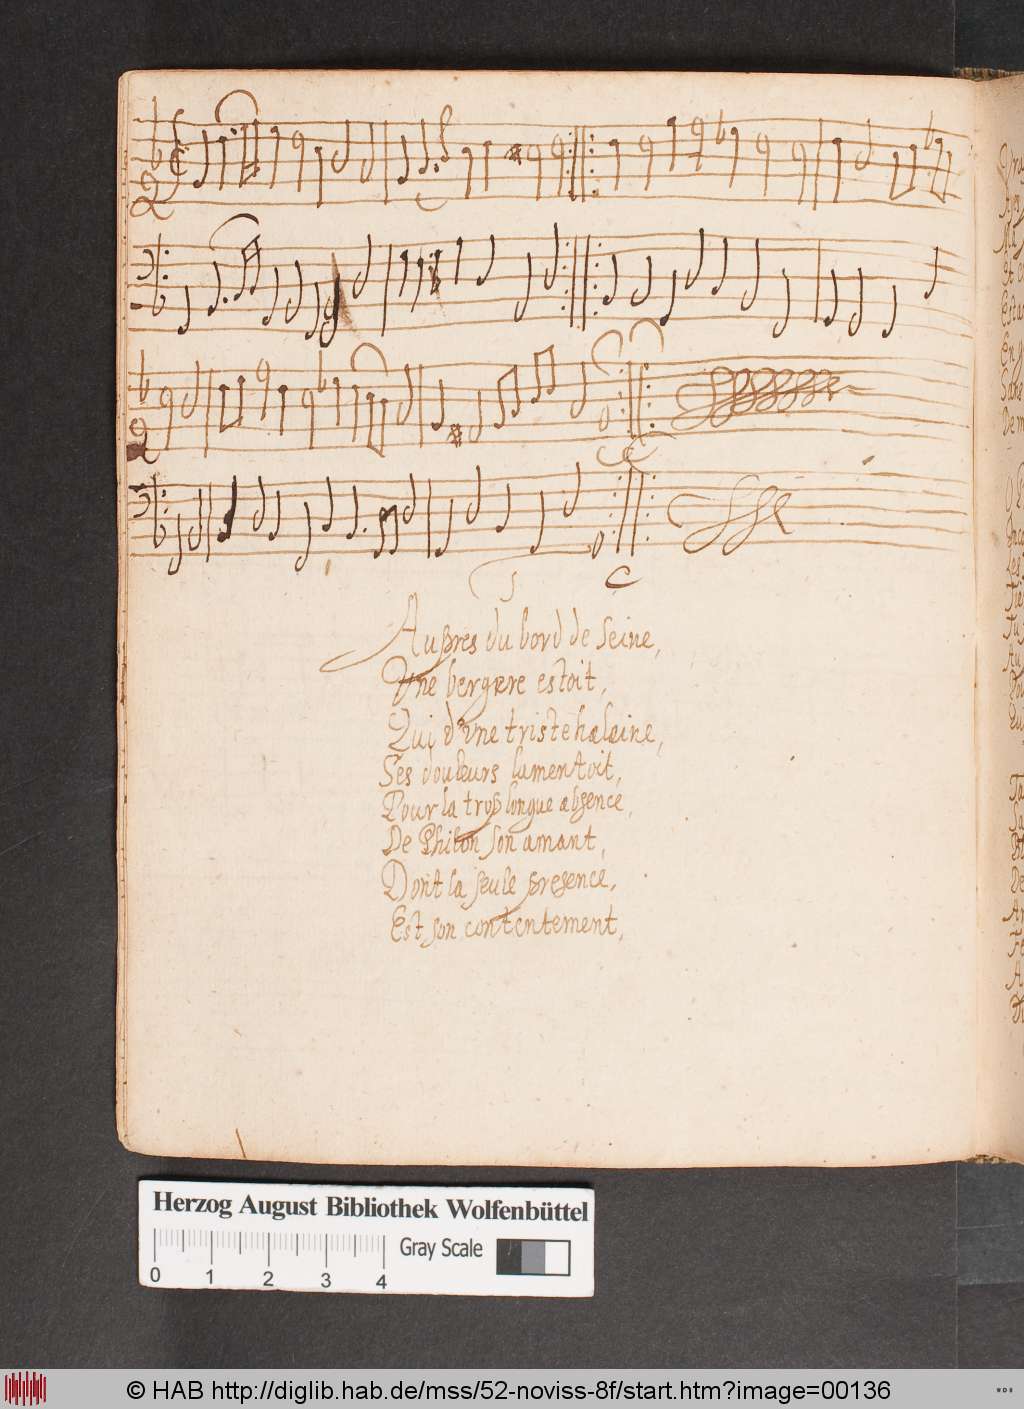 Aupres du bord de Seine,
Une bergere estoit,
Qui d'une triste haleine,
Ses douleurs lamentoit,
Pour la trop longue absence,
De Philon son amant,
Dont la seule presence,
Est son contentement,
Herzog August Bibliothek Wolfenbüttel
Gray Scale
0 1 2 3 4
© HAB http://diglib.hab.de/mss/52-noviss-8f/start.htm?image=00136